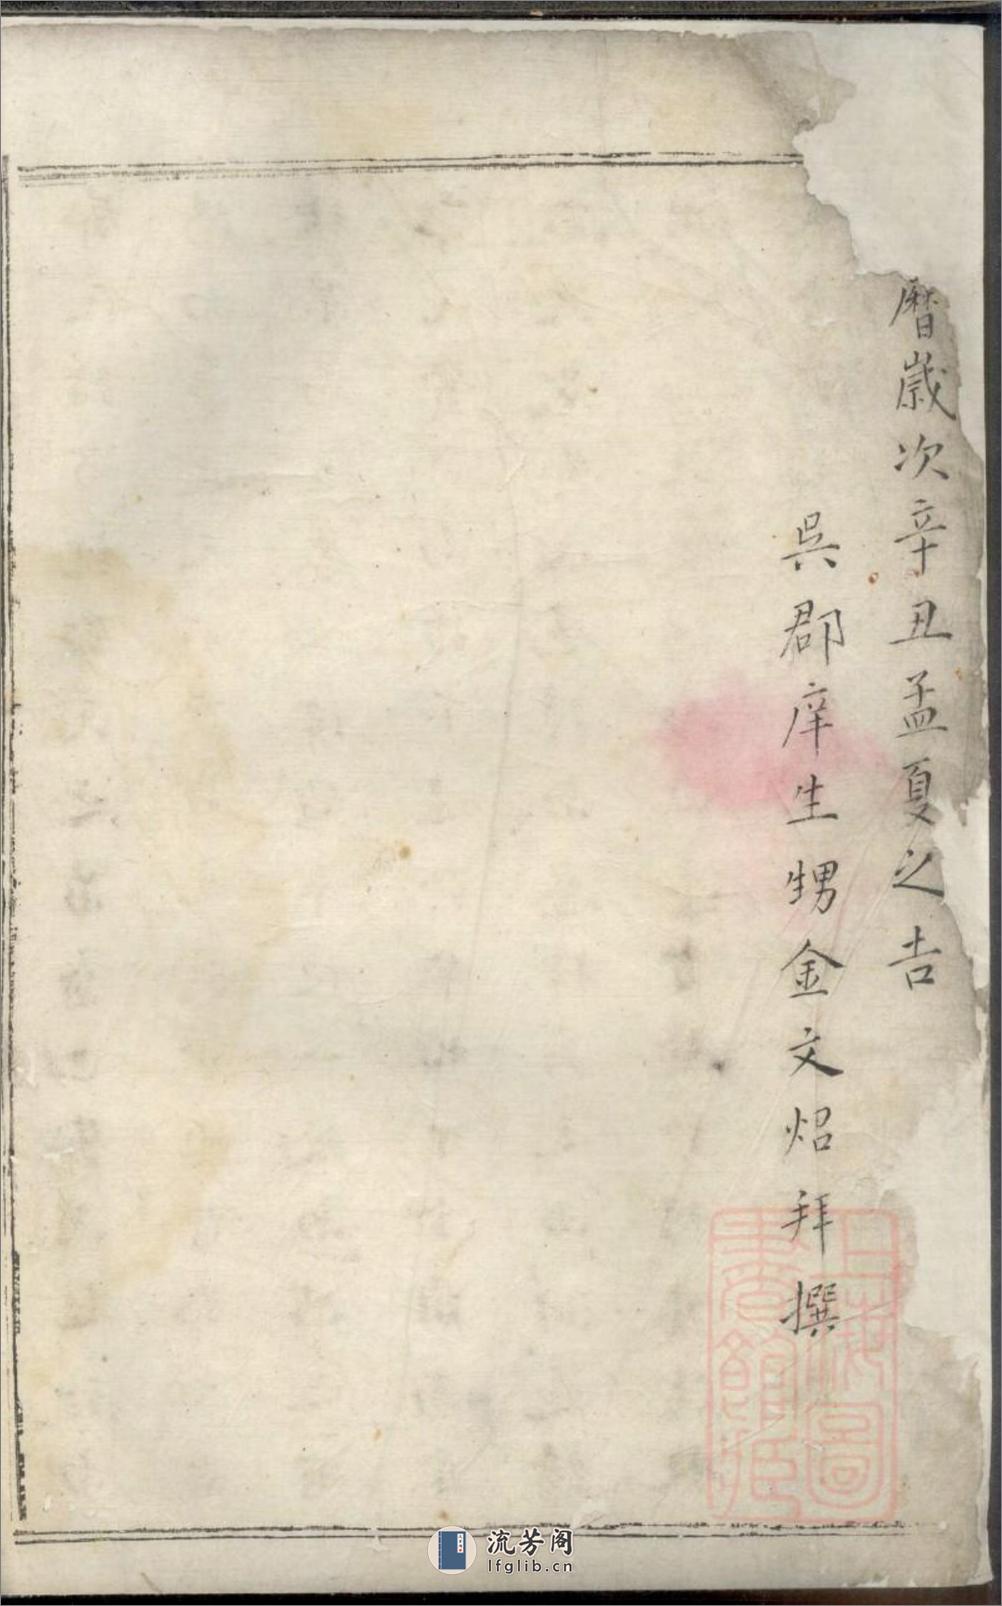 曆歲次辛丑孟夏之吉
吳郡庠生甥金文炤拜撰
上海圖
書館藏
流芳阁
lfglib.cn